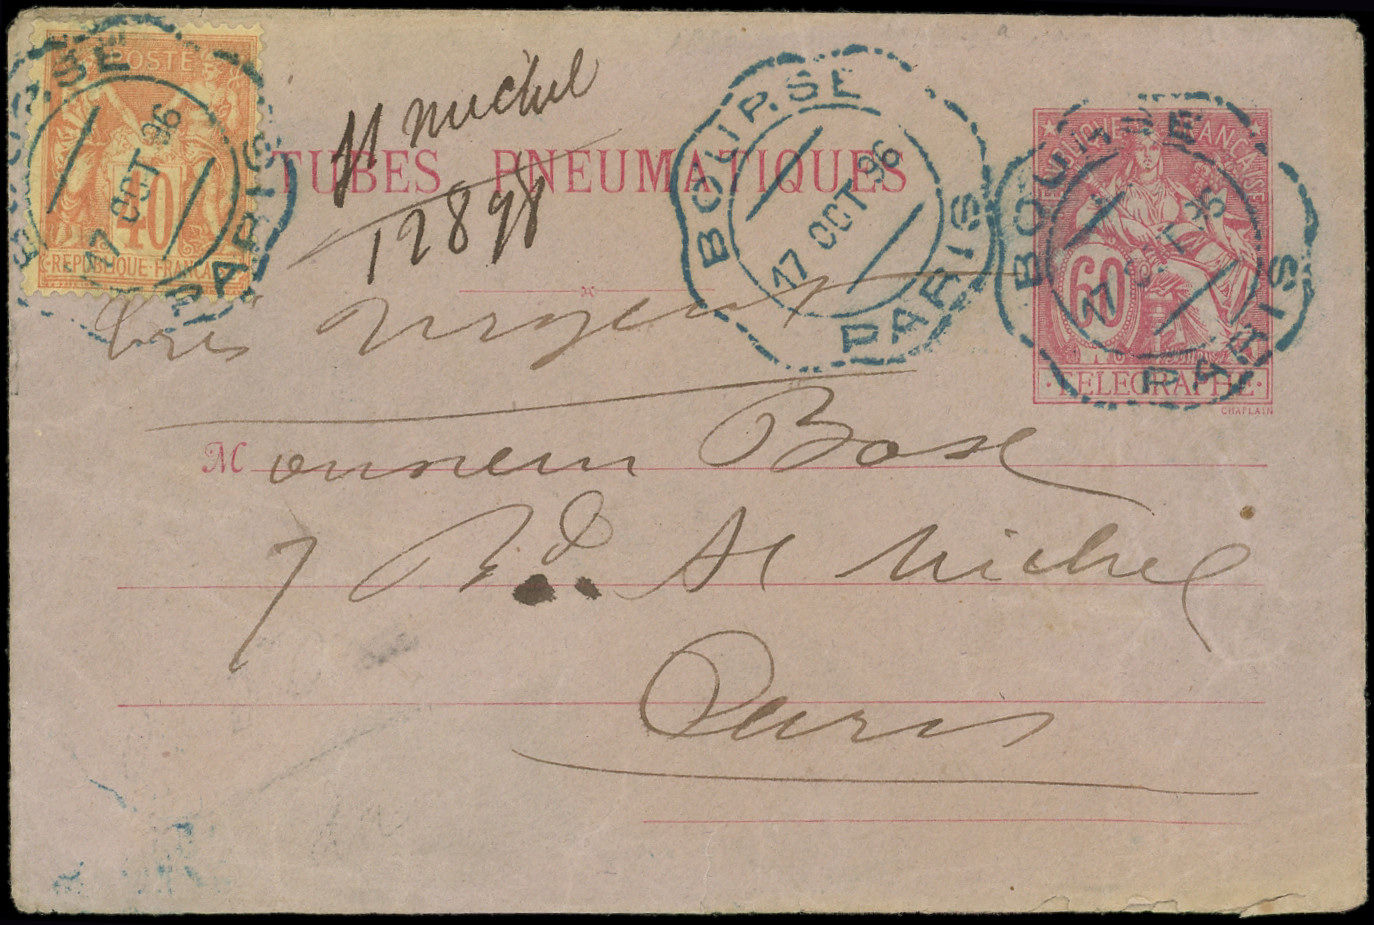 POSTE
40
REPUBLIQUE FRANCAISE
BOURSE
17 OCT 96
PARIS
St Michel
12898
TUBES PNEUMATIQUES
BOURSE
17 OCT 96
PARIS
REPUBLIQUE FRANCAISE
60
TELEGRAPHE
CHAPLAIN
BOURSE
17 OCT 96
PARIS
très urgent
Monsieur Bose
7 Bd. St Michel
Paris